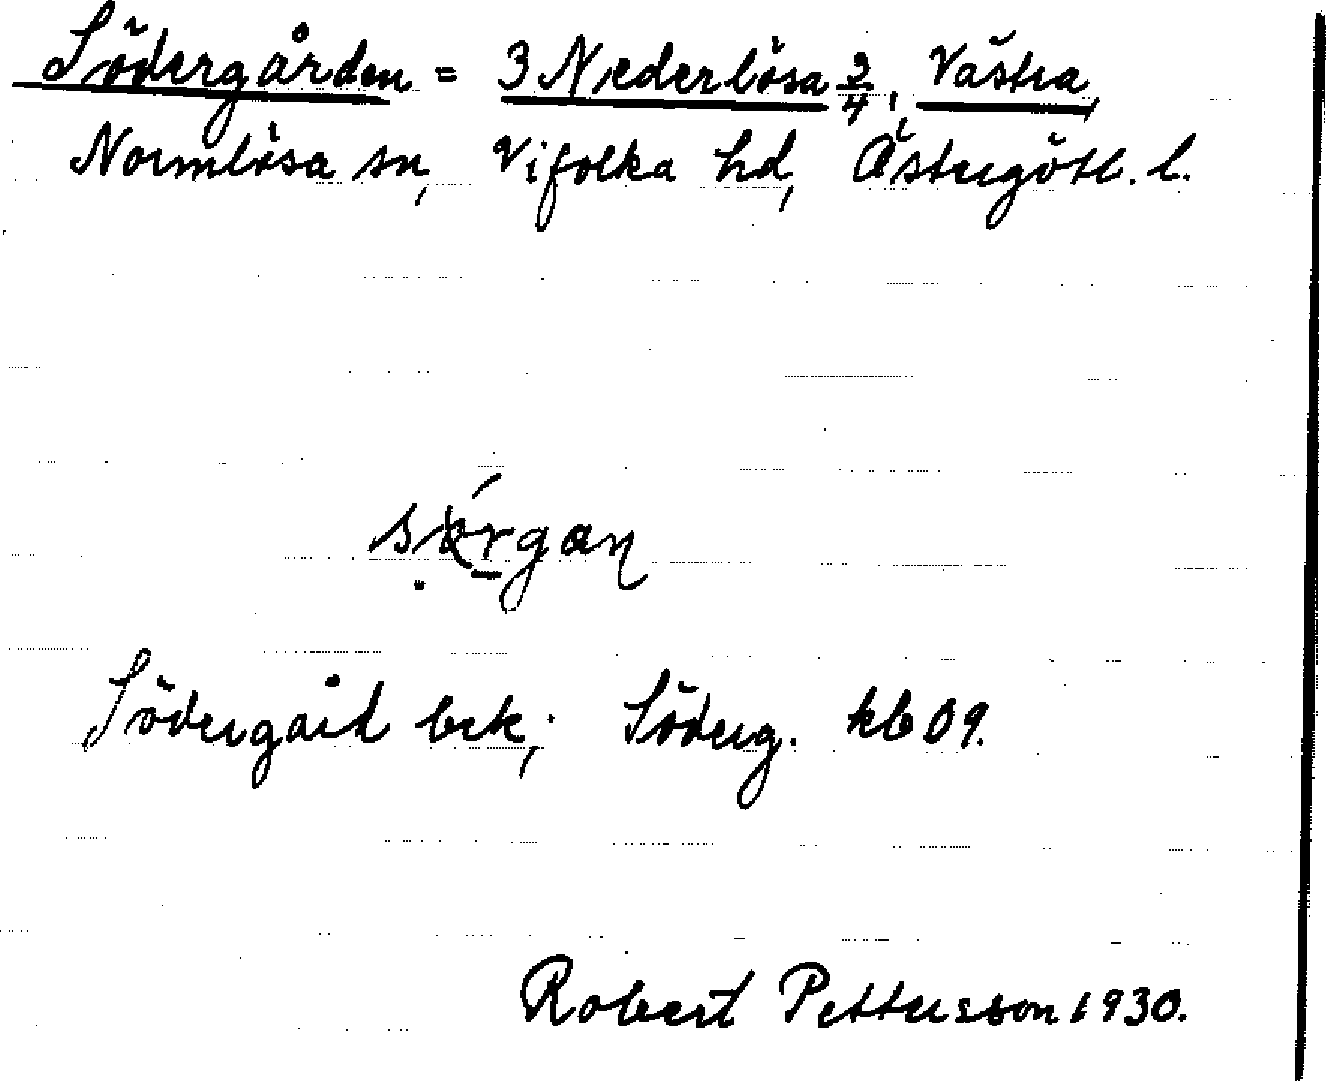 Södergården = 3 Nederlösa 2/4, Västra,
Normlösa sn, Vifolka hd, Östergötl. l.
sörgan
Södergård bek; Söderg. kb 09.
Robert Pettersson 1930.